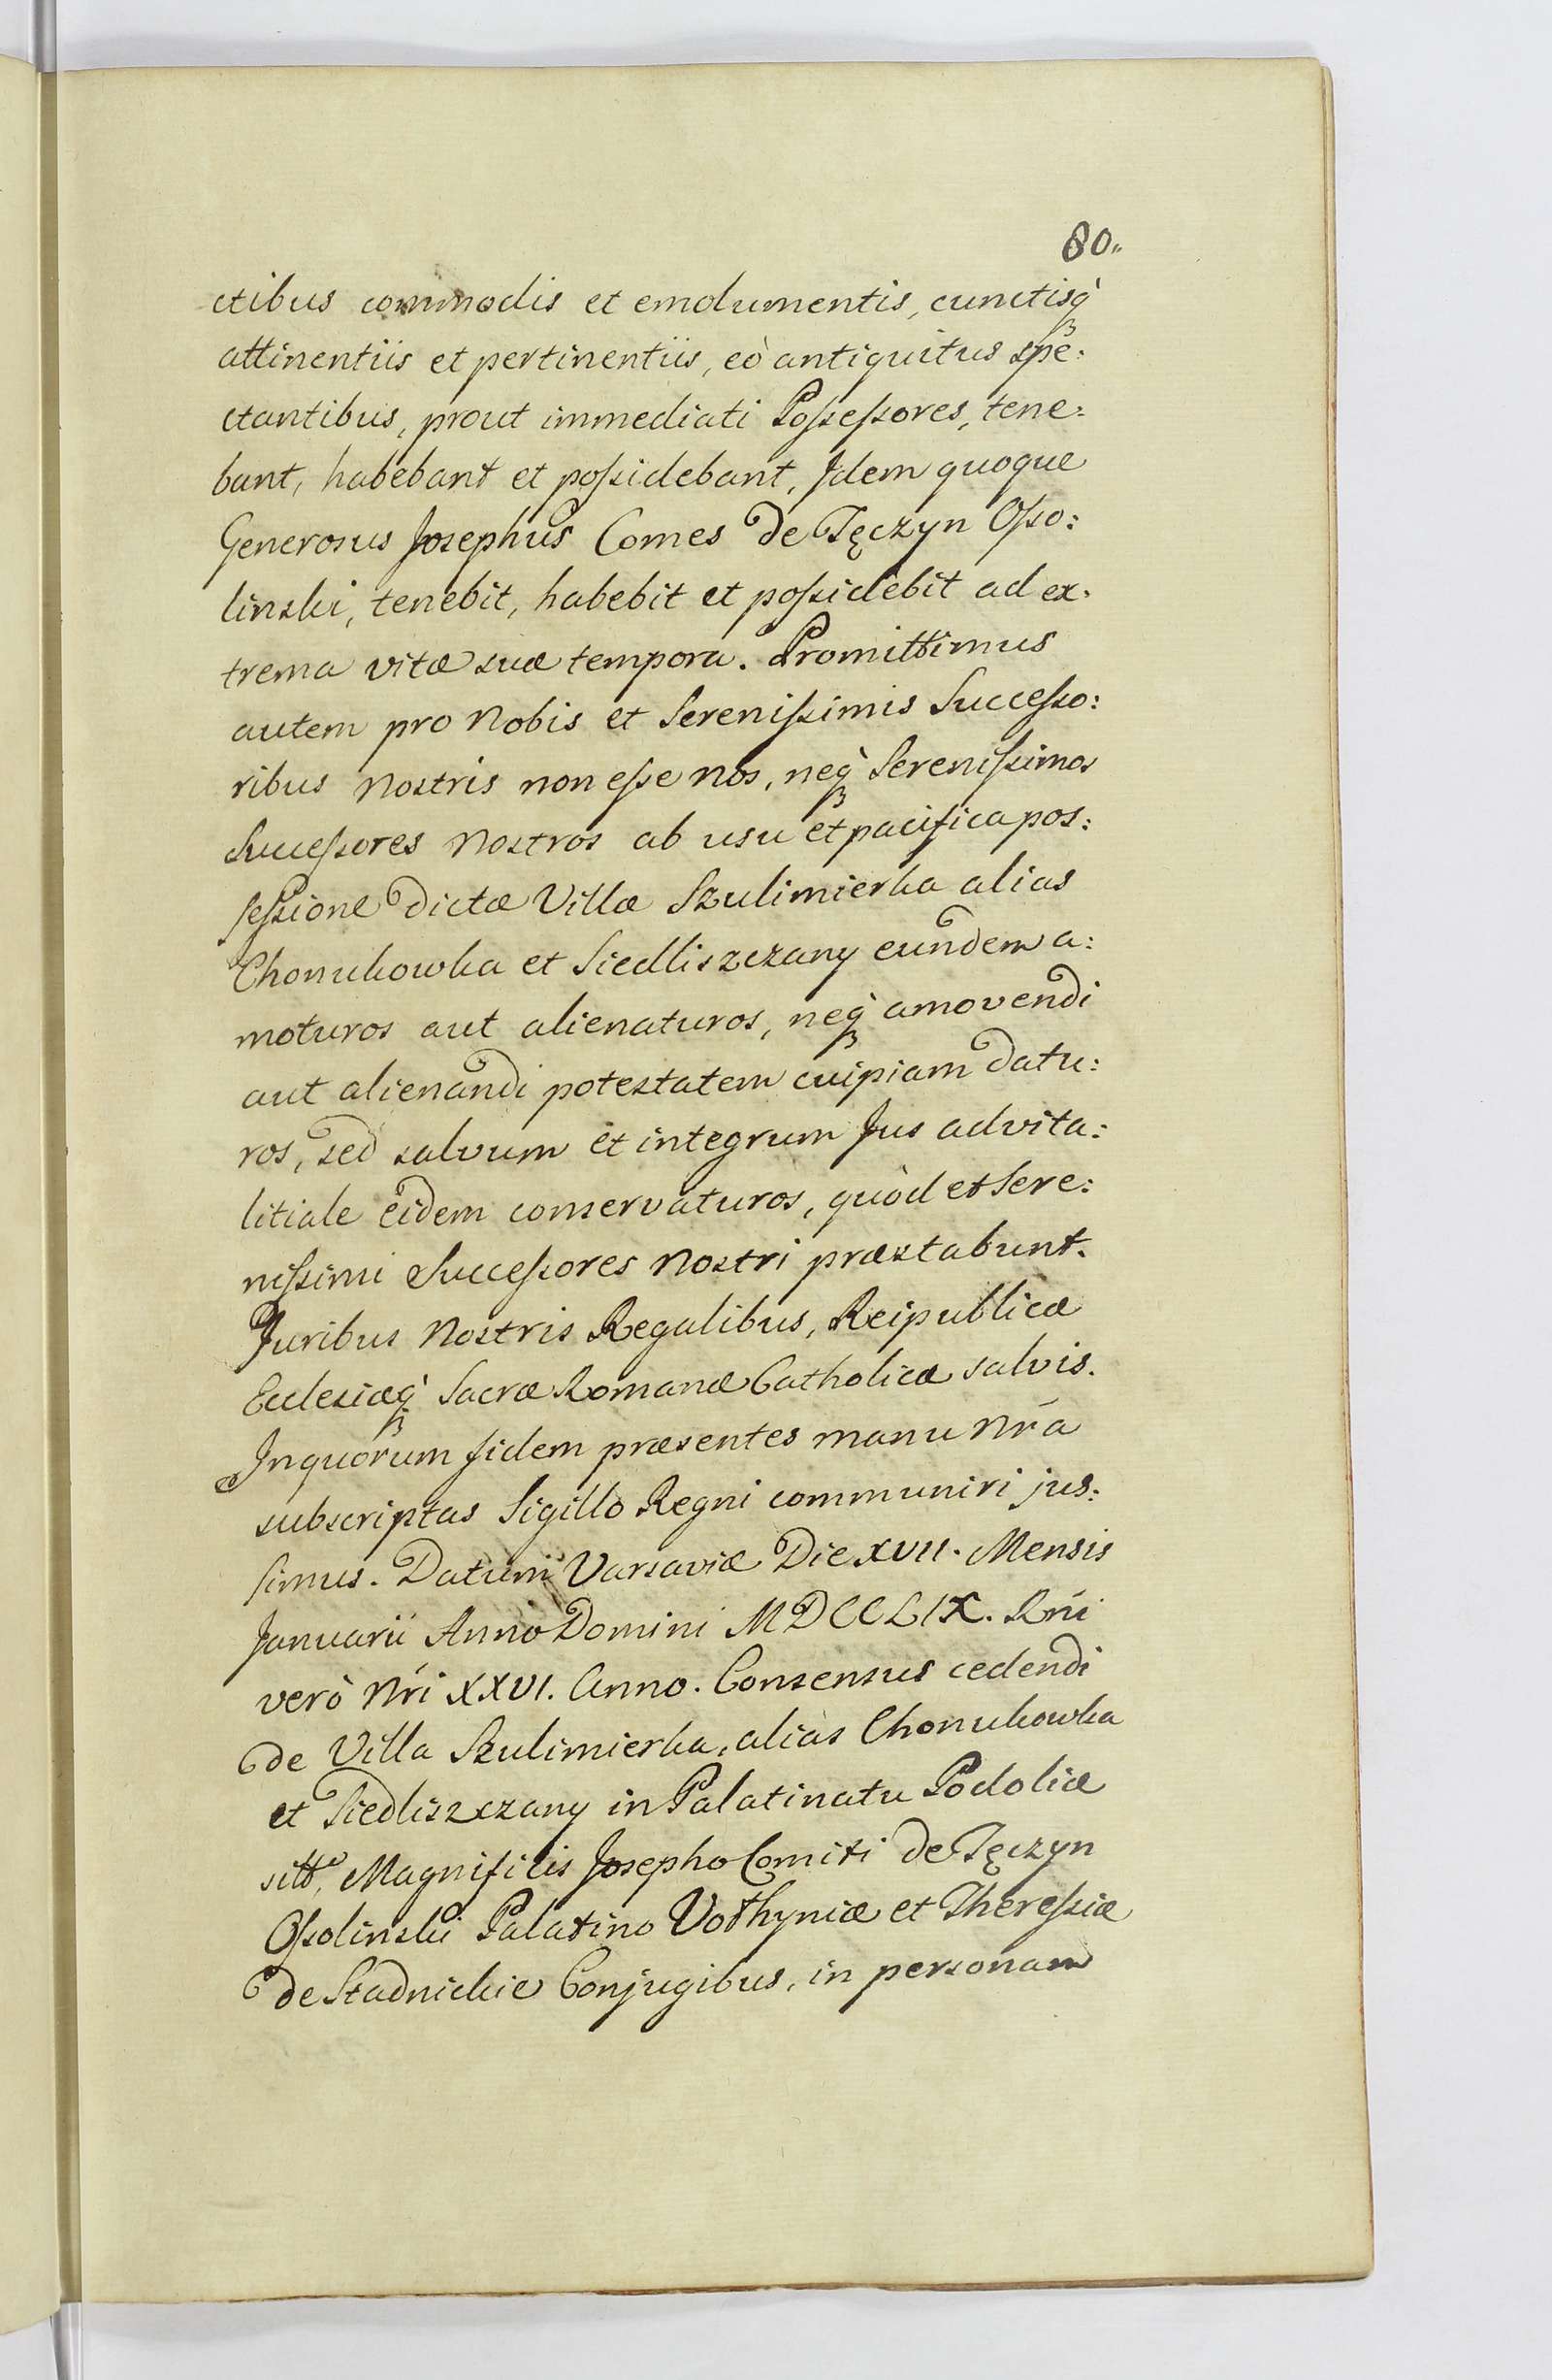 80.
ctibus commodis et emolumentis, cunctisq̀
attinentiis et pertinentiis, eò antiquitus spe:
ctantibus, prout immediati Possessores, tene:
bant, habebant et possidebant, Idem quoque
Generosus Josephus Comes de Tęczyn Osso:
linski, tenebit, habebit et possidebit ad ex:
trema vitæ suæ tempora. Promittimus
autem pro Nobis et Serenissimis Successo:
ribus Nostris non esse Nos, neq̀ Serenissimos
Successores Nostros ab usu et pacifica pos:
sessione dictæ Villæ Szulimierka alias
Chonukowka et Siedliszczany eundem a:
moturos aut alienaturos, neq̀ amovendi
aut alienandi potestatem cuipiam datu:
ros, sed salvum et integrum Jus advita:
litiale eidem conservaturos, quòd et Sere:
nissimi Successores Nostri præstabunt.
Juribus Nostris Regalibus, Reipublicæ
Ecclesiæq̀ Sacræ Romanæ Catholicæ salvis.
In quorum fidem præsentes manu Nr̃a
subscriptas Sigillo Regni communiri jus:
simus. Datum Varsaviæ Die XVII. Mensis
Januarii Anno Domini MDCCLIX. Rñi
verò Nr̃i XXVI. Anno. Consensus cedendi
de Villa Szulimierka, alias Chonukowka
et Siedliszczany in Palatinatu Podoliæ
sitt, Magnificis Josepho Comiti de Tęczyn
Ossolinski Palatino Volhyniæ et Theressiæ
de Stadnickie Conjugibus, in personam